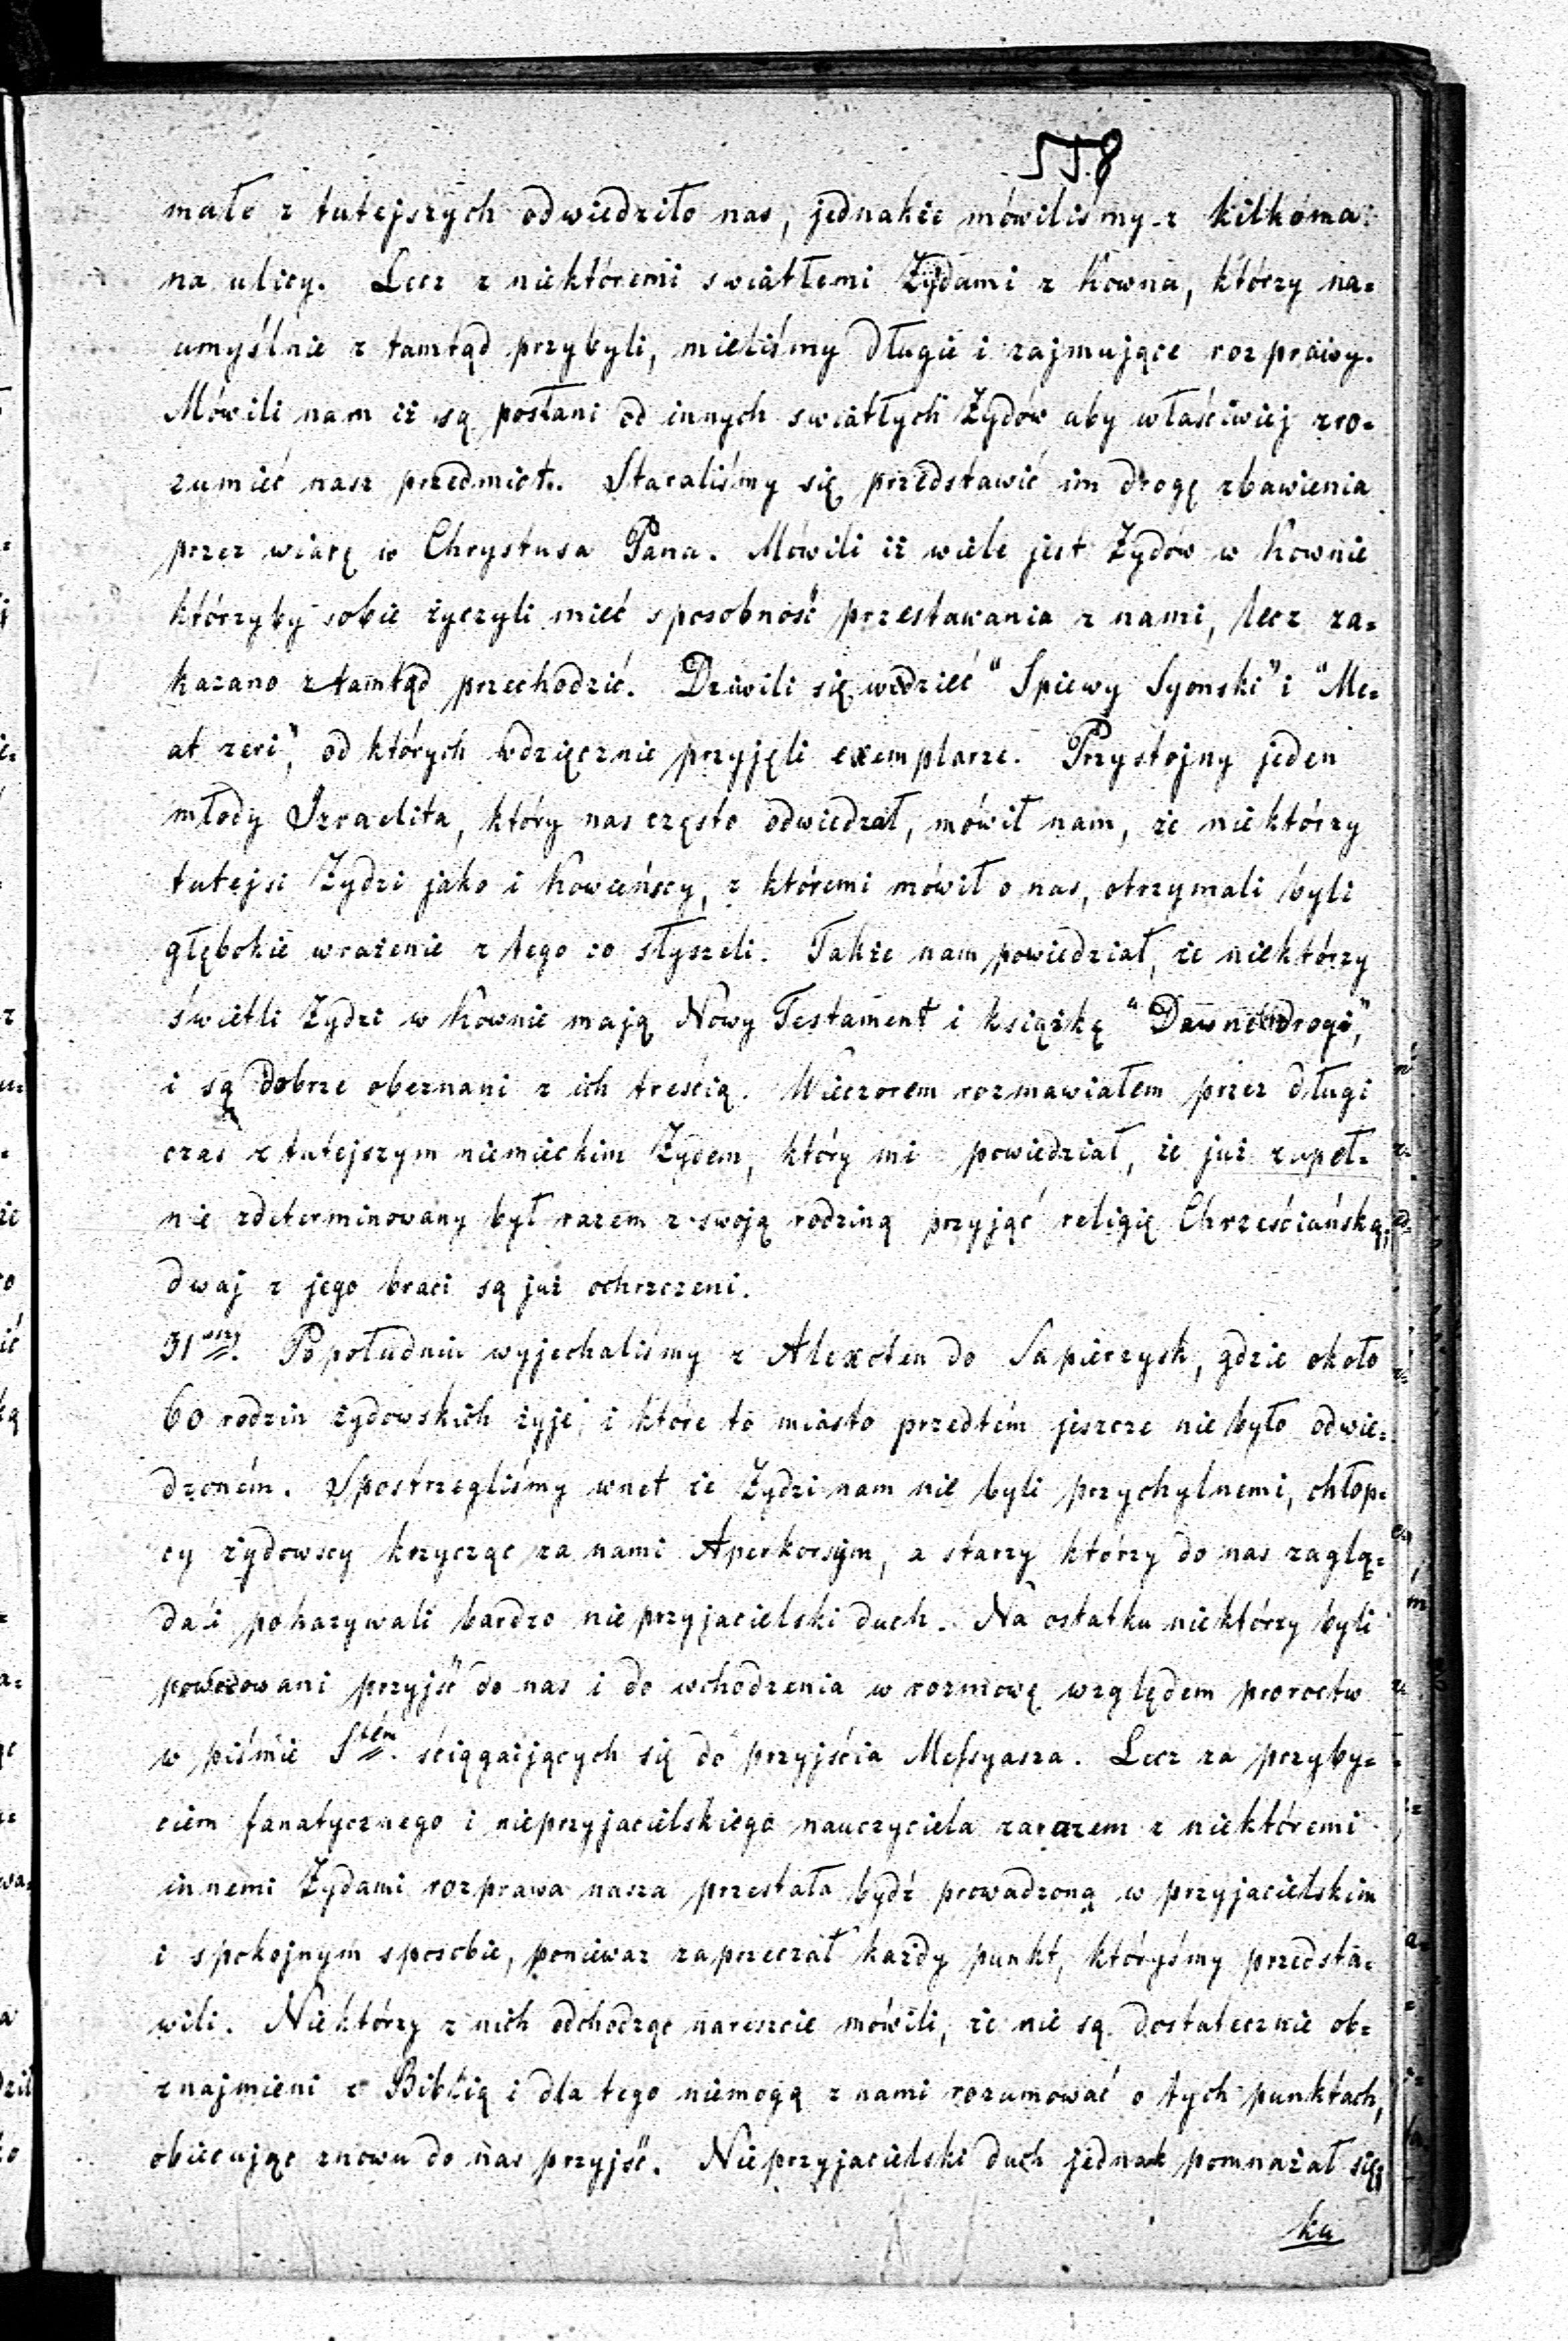 558
mało z tutejszych odwiedziło nas, jednakże mówiliśmy z kilkoma
na ulicy. Lecz z niektóremi swiatłemi Żydami z Kowna, którzy na=
umyślnie z tamtąd przybyli, mieliśmy długie i zajmujące rozprawy.
Mówili nam iż są posłani od innych swiatłych Żydów aby właściwiej zro=
zumieć nasz przedmiot. Staraliśmy się przedstawić im drogę zbawienia
przez wiarę w Chrystusa Pana. Mówili iż wiele jest Żydów w Kownie
którzyby sobie życzyli mieć sposobność przestawania z nami, lecz za=
kazano z tamtąd przechodzić. Dziwili się widzieć "Spiewy Syonski" i "Me=
at zeri", od których wdzięcznie przyjęli exemplarze. Przystojny jeden
młody Izraelita, który nas często odwiedzał, mówił nam, że niektórzy
tutejsi Żydzi jako i Kowieńscy, z któremi mówił o nas, otrzymali byli
głębokie wrażenie z tego co słyszeli. Także nam powiedział, że niektórzy
świetli Żydzi w Kownie mają Nowy Testament i książkę "Dawne drogi",
i są dobrze obeznani z ich treścią. Wieczorem rozmawiałem przez długi
czas z tutejszym niemieckim Żydem, który mi powiedział, że już zupeł=
nie zdeterminowany był razem z swoją rodziną przyjąć religię Chrześciańską;
dwaj z jego braci są już ochrzczeni.
31wszy. Popołudniu wyjechaliśmy z Alexoten do Sapierzysk, gdzie około
60 rodzin żydowskich żyje, i które to miasto przedtém jeszcze nie było odwie=
dzoném. Spostrzegliśmy wnet że Żydzi nam nie byli przychylnemi, chłop=
cy żydowscy krzycząc za nami Aperkorsym, a starzy którzy do nas zaglą=
dali pokazywali bardzo nieprzyjacielski duch. Na ostatku niektórzy byli
powodowani przyjść do nas i do wchodzenia w rozmowę względem proroctw
w piśmie Stém. ściągających się do przyjścia Messyasza. Lecz za przyby=
ciem fanatycznego i nieprzyjacielskiego nauczyciela zarazem z niektóremi
innemi Żydami rozprawa nasza przestała bydź prowadzoną w przyjacielskim
i spokojnym sposobie, ponieważ zaprzeczał każdy punkt, któryśmy przedsta=
wili. Niektórzy z nich odchodząc nareszcie mówili, że nie są dostatecznie ob=
znajmieni z Biblią i dla tego niemogą z nami rozumować o tych punktach,
obiecując znowu do nas przyjść. Nieprzyjacielski duch jednak pomnażał się;
ku